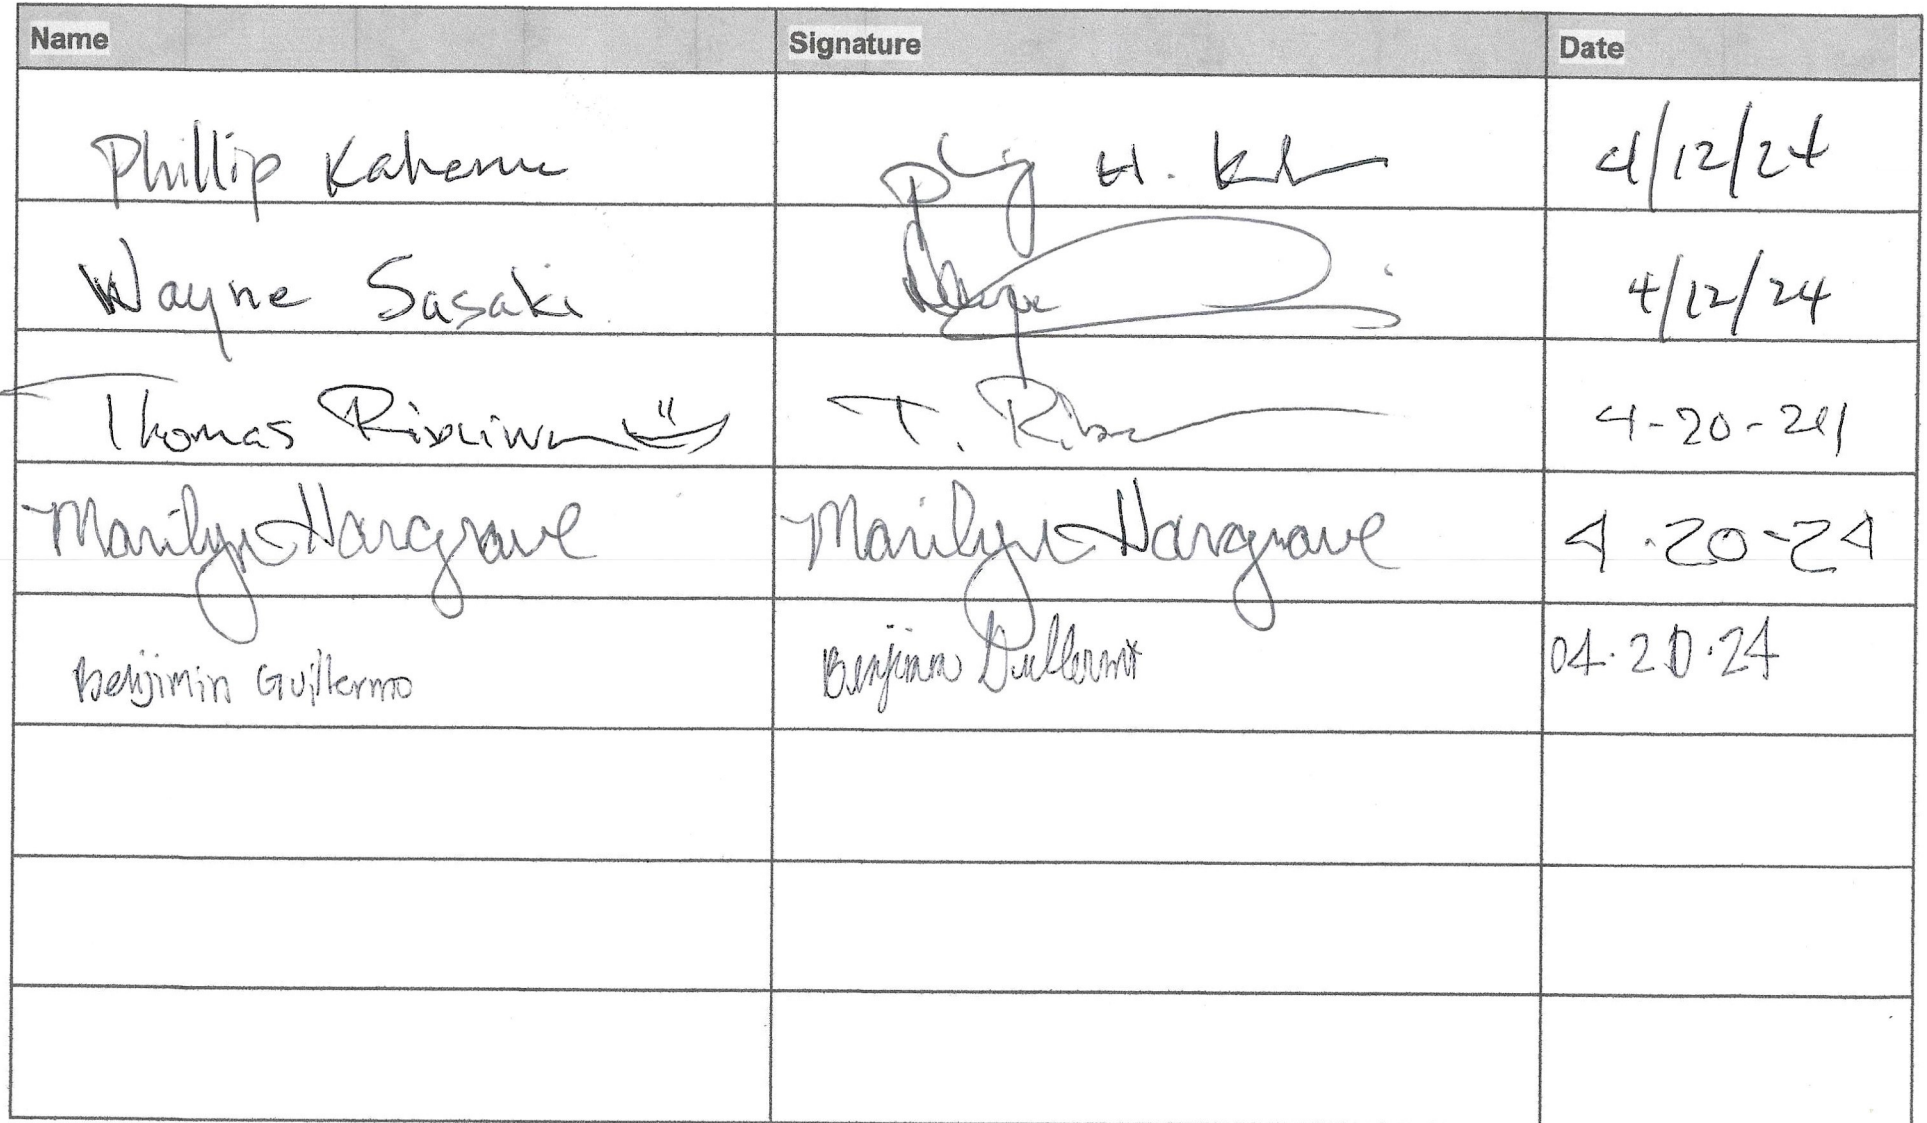 Name Signature Date
Phillip H. 4/12/24
Wayne Sasaki Wayne 4/12/24
Thomas T. 4-20-24
Marilyn Hargrave Marilyn Hargrave 4-20-24
Benjimin Guillermo Benjimin Guillermo 04.20.24